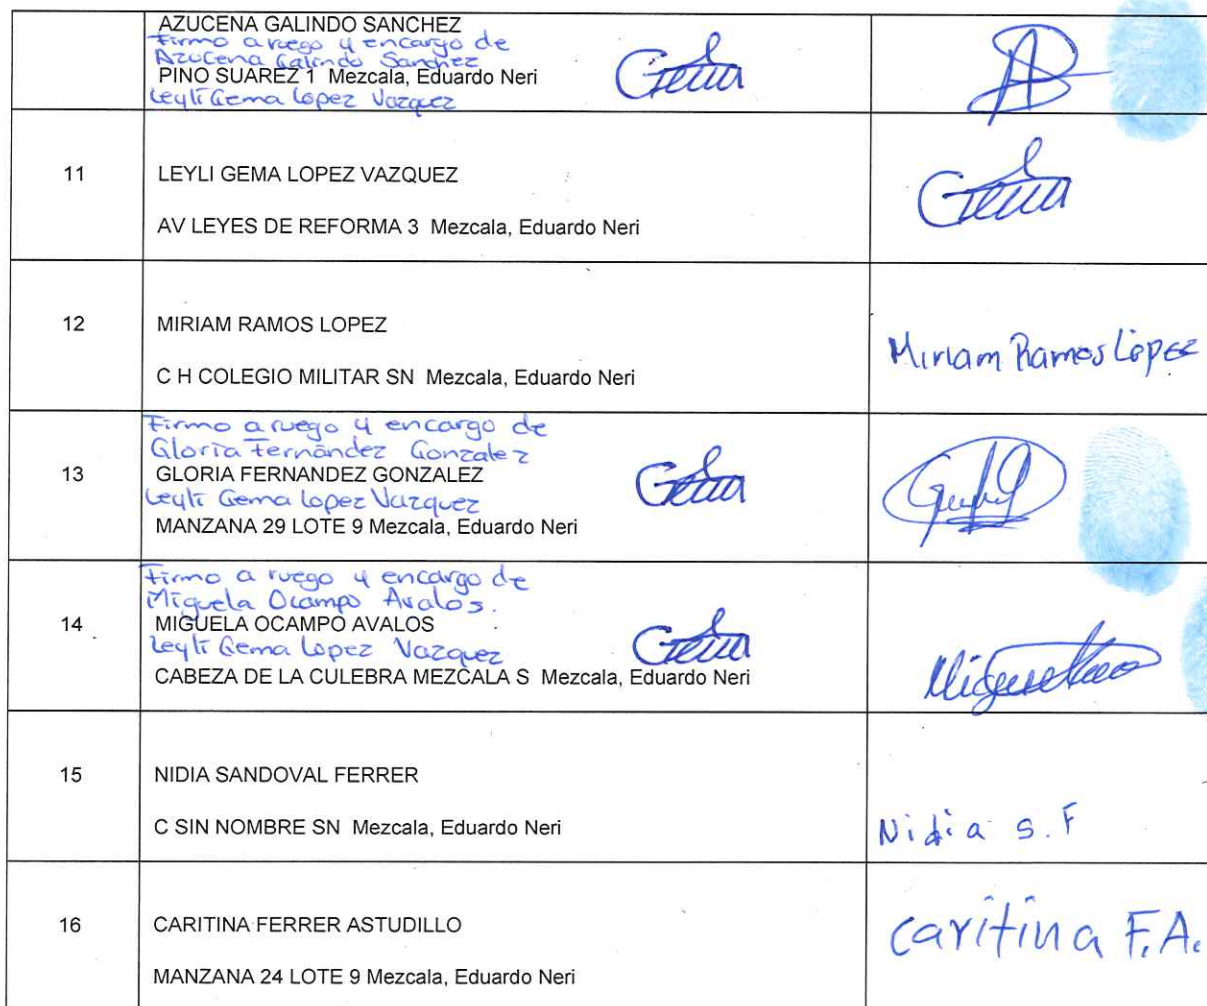 AZUCENA GALINDO SANCHEZ
Firmo a ruego y encargo de
Azucena Galindo Sanchez
PINO SUAREZ 1 Mezcala, Eduardo Neri
Leyli Gema Lopez Vazquez
Gema
11
LEYLI GEMA LOPEZ VAZQUEZ
Gema
AV LEYES DE REFORMA 3 Mezcala, Eduardo Neri
12
MIRIAM RAMOS LOPEZ
Miriam Ramos Lopez
C H COLEGIO MILITAR SN Mezcala, Eduardo Neri
Firmo a ruego y encargo de
Gloria Fernández Gonzalez
13
GLORIA FERNANDEZ GONZALEZ
Gema
Leyli Gema Lopez Vazquez
MANZANA 29 LOTE 9 Mezcala, Eduardo Neri
Firmo a ruego y encargo de
Miguela Ocampo Avalos.
14
MIGUELA OCAMPO AVALOS
Gema
Leyli Gema Lopez Vazquez
CABEZA DE LA CULEBRA MEZCALA S Mezcala, Eduardo Neri
15
NIDIA SANDOVAL FERRER
C SIN NOMBRE SN Mezcala, Eduardo Neri
Nidia S.F
16
CARITINA FERRER ASTUDILLO
Caritina F.A.
MANZANA 24 LOTE 9 Mezcala, Eduardo Neri